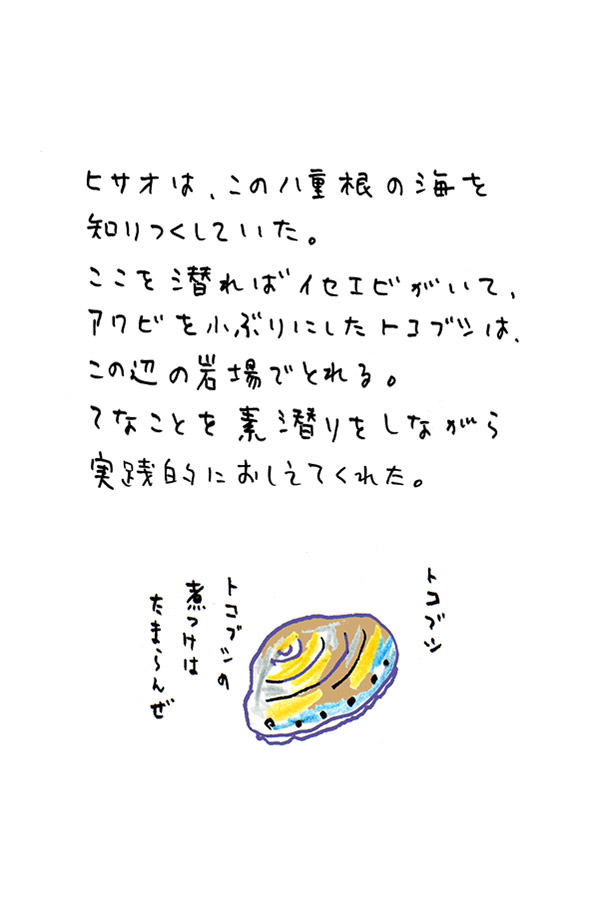 ヒサオは、この八重根の海を
知りつくしていた。
ここを潜ればイセエビがいて、
アワビを小ぶりにしたトコブシは、
この辺の岩場でとれる。
てなことを素潜りをしながら
実践的におしえてくれた。
トコブシ
トコブシの
煮つけは
たまらんぜ